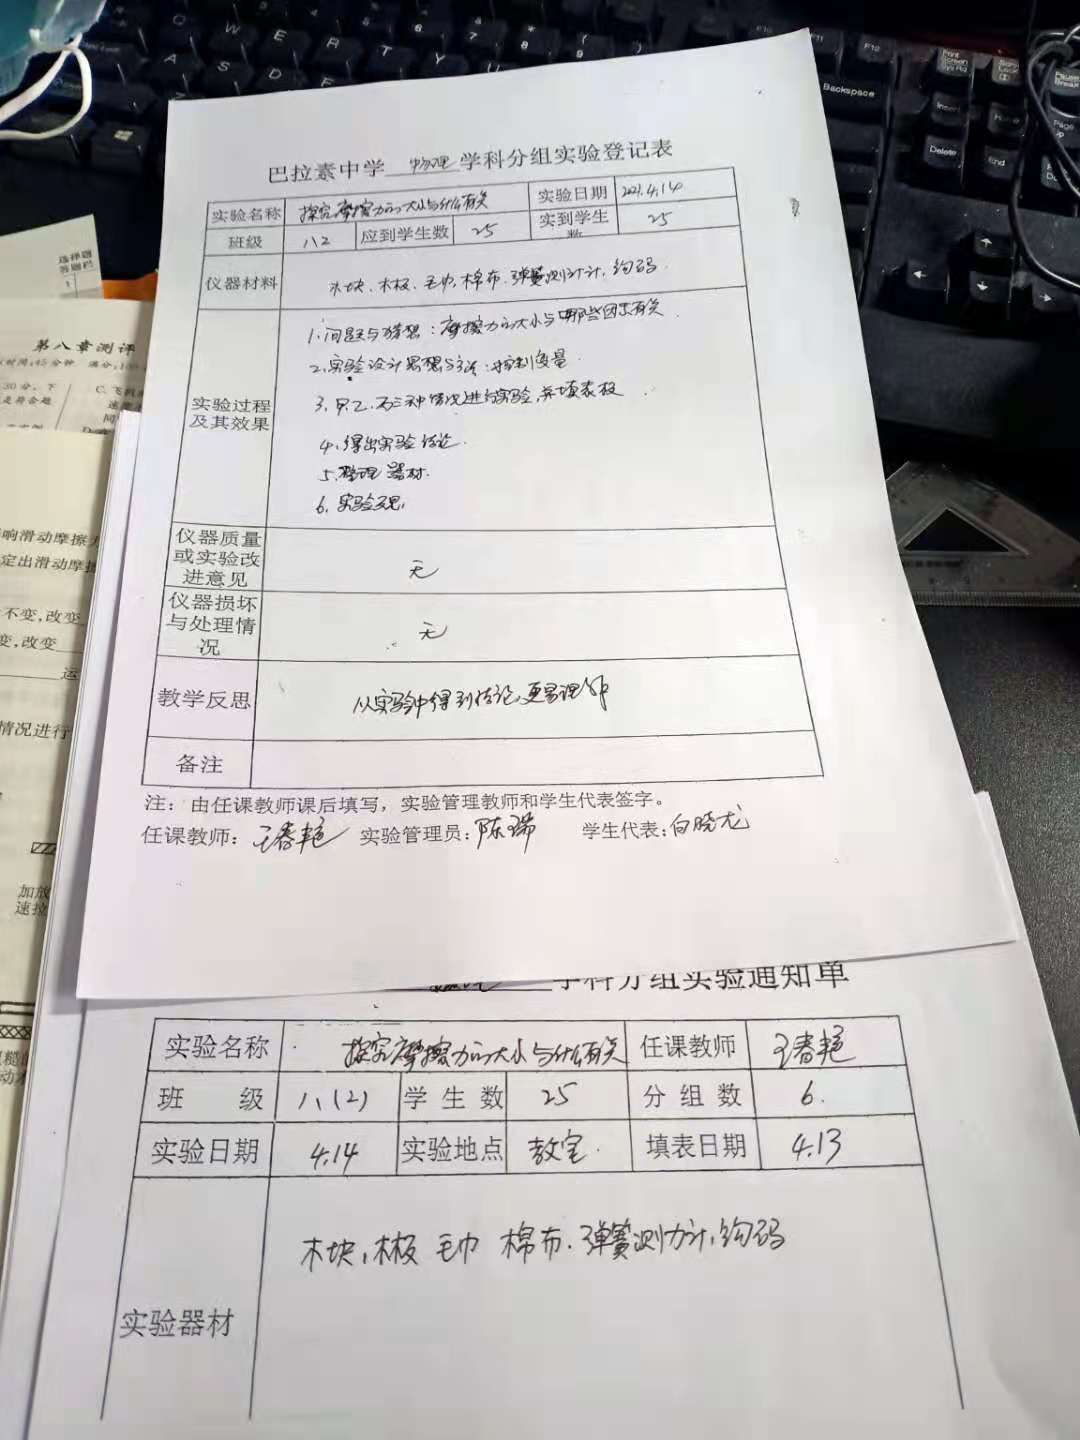 巴拉素中学 物理 学科分组实验登记表
实验名称 探究摩擦力的大小与什么有关 实验日期 2021.4.14
班级 八2 应到学生数 25 实到学生数 25
仪器材料 木块、木板、毛巾、棉布、弹簧测力计、钩码.
实验过程及其效果
1、问题与猜想：摩擦力的大小与哪些因素有关
2、实验设计思想方法：控制变量
3、甲、乙、丙三种情况进行实验,并填表格
4、得出实验结论.
5、整理器材.
6、实验
仪器质量或实验改进意见 无
仪器损坏与处理情况 无
教学反思 从实验中得到结论,更易理解
备注
注：由任课教师课后填写，实验管理教师和学生代表签字。
任课教师：王春艳 实验管理员：陈瑞 学生代表：白晓龙
学科分组实验通知单
实验名称 探究摩擦力的大小与什么有关 任课教师 王春艳
班级 八(2) 学生数 25 分组数 6.
实验日期 4.14 实验地点 教室. 填表日期 4.13
实验器材 木块,木板 毛巾 棉布.弹簧测力计,钩码
第八章测评
45分钟
Backspace
Print Screen SysRq
Insert
Home
Page Up
Delete
End
Pause Break
F10
F11
F12